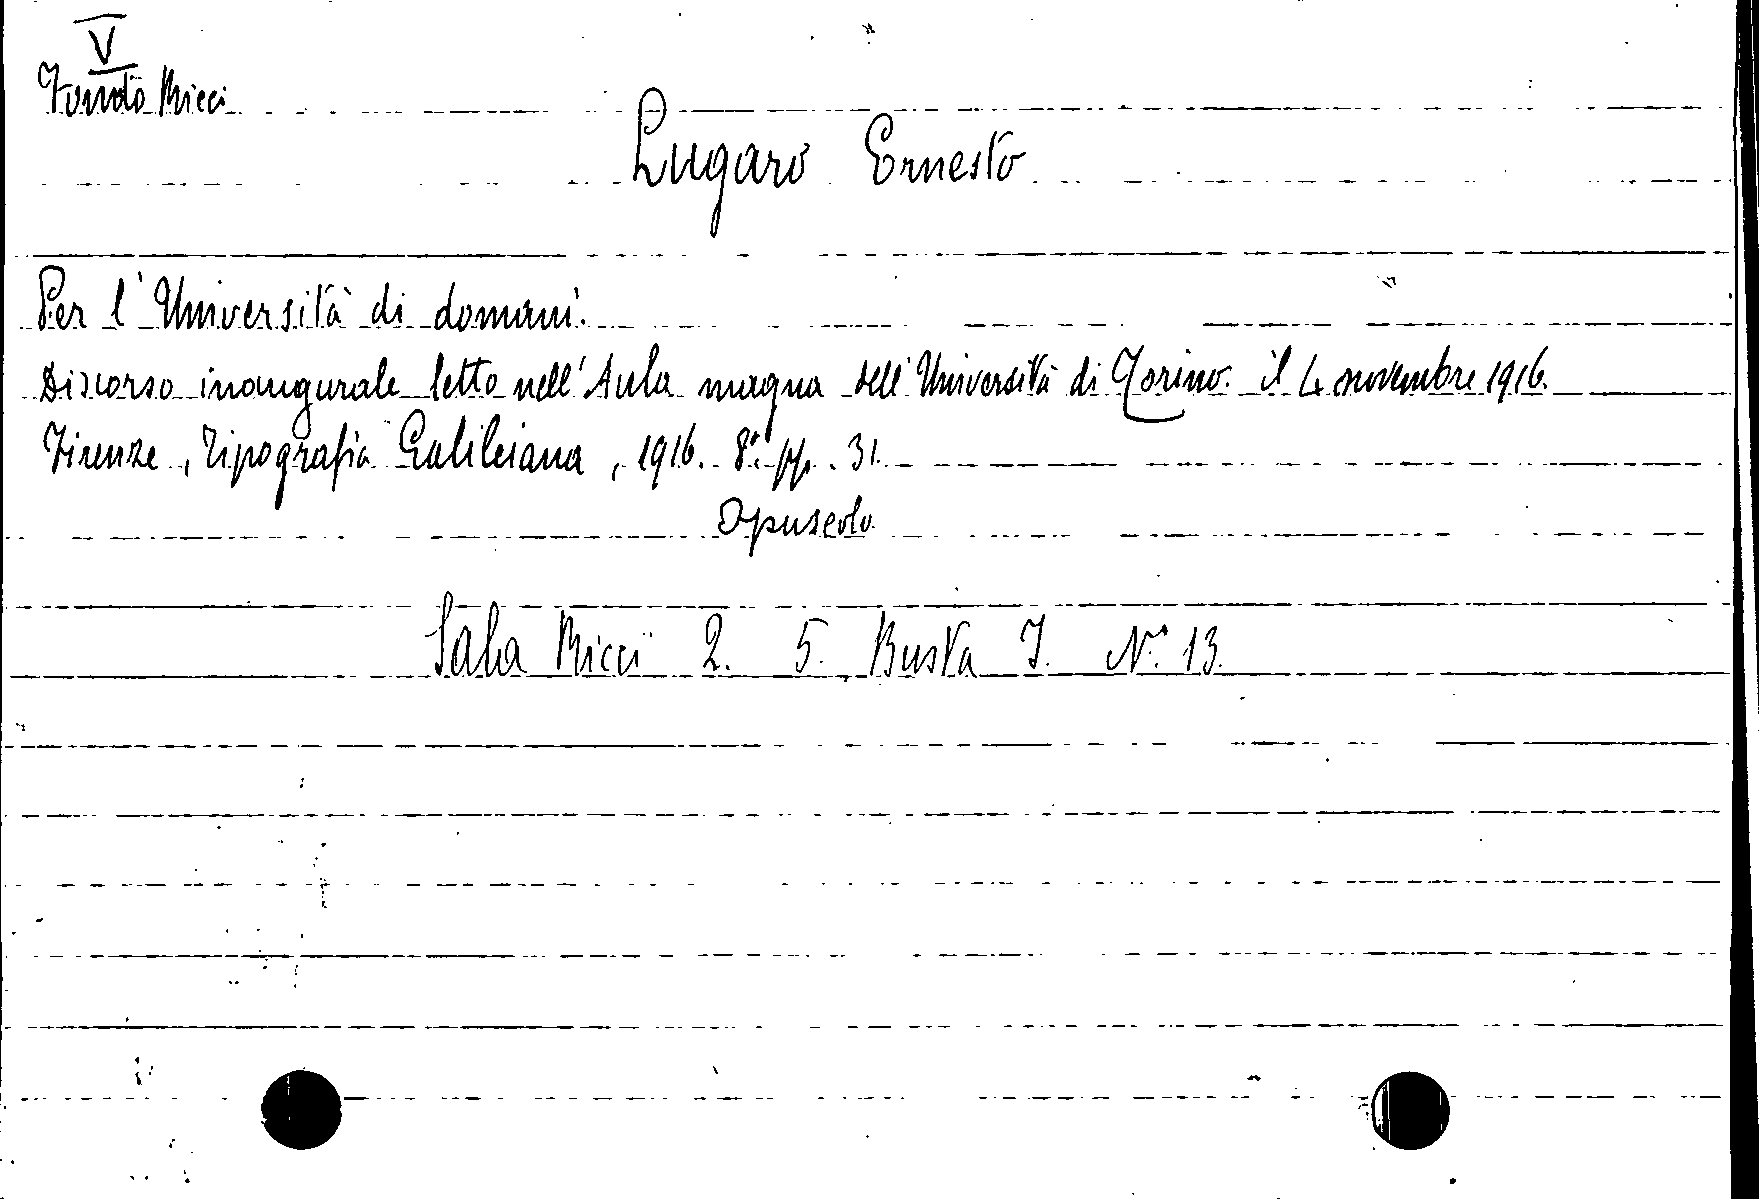 V
Fondo Ricci
Lugaro Ernesto
Per l'Università di domani.
Discorso inaugurale letto nell'Aula magna dell'Università di Torino il 4 novembre 1916.
Firenze, Tipografia Galileiana, 1916. 8° pp. 31.
Opuscolo
Sala Ricci 2. 5. Busta I. N.° 13.